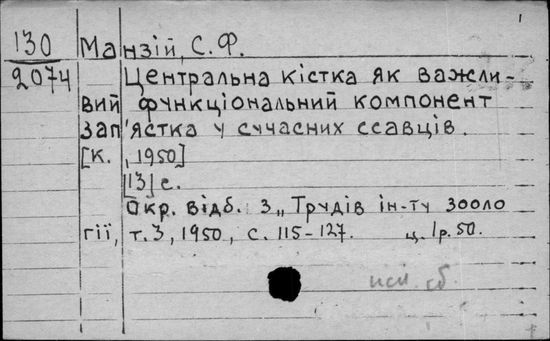 1
130 Манзій, С. Ф.
2074 Центральна кістка як важли-
вий функціональний компонент
зап'ястка у сучасних ссавців.
[К., 1950]
[13] с.
Окр. відб. з „Трудів ін-ту зооло
гії, т. 3, 1950, с. 115-127. ц. 1р. 50.
сб.